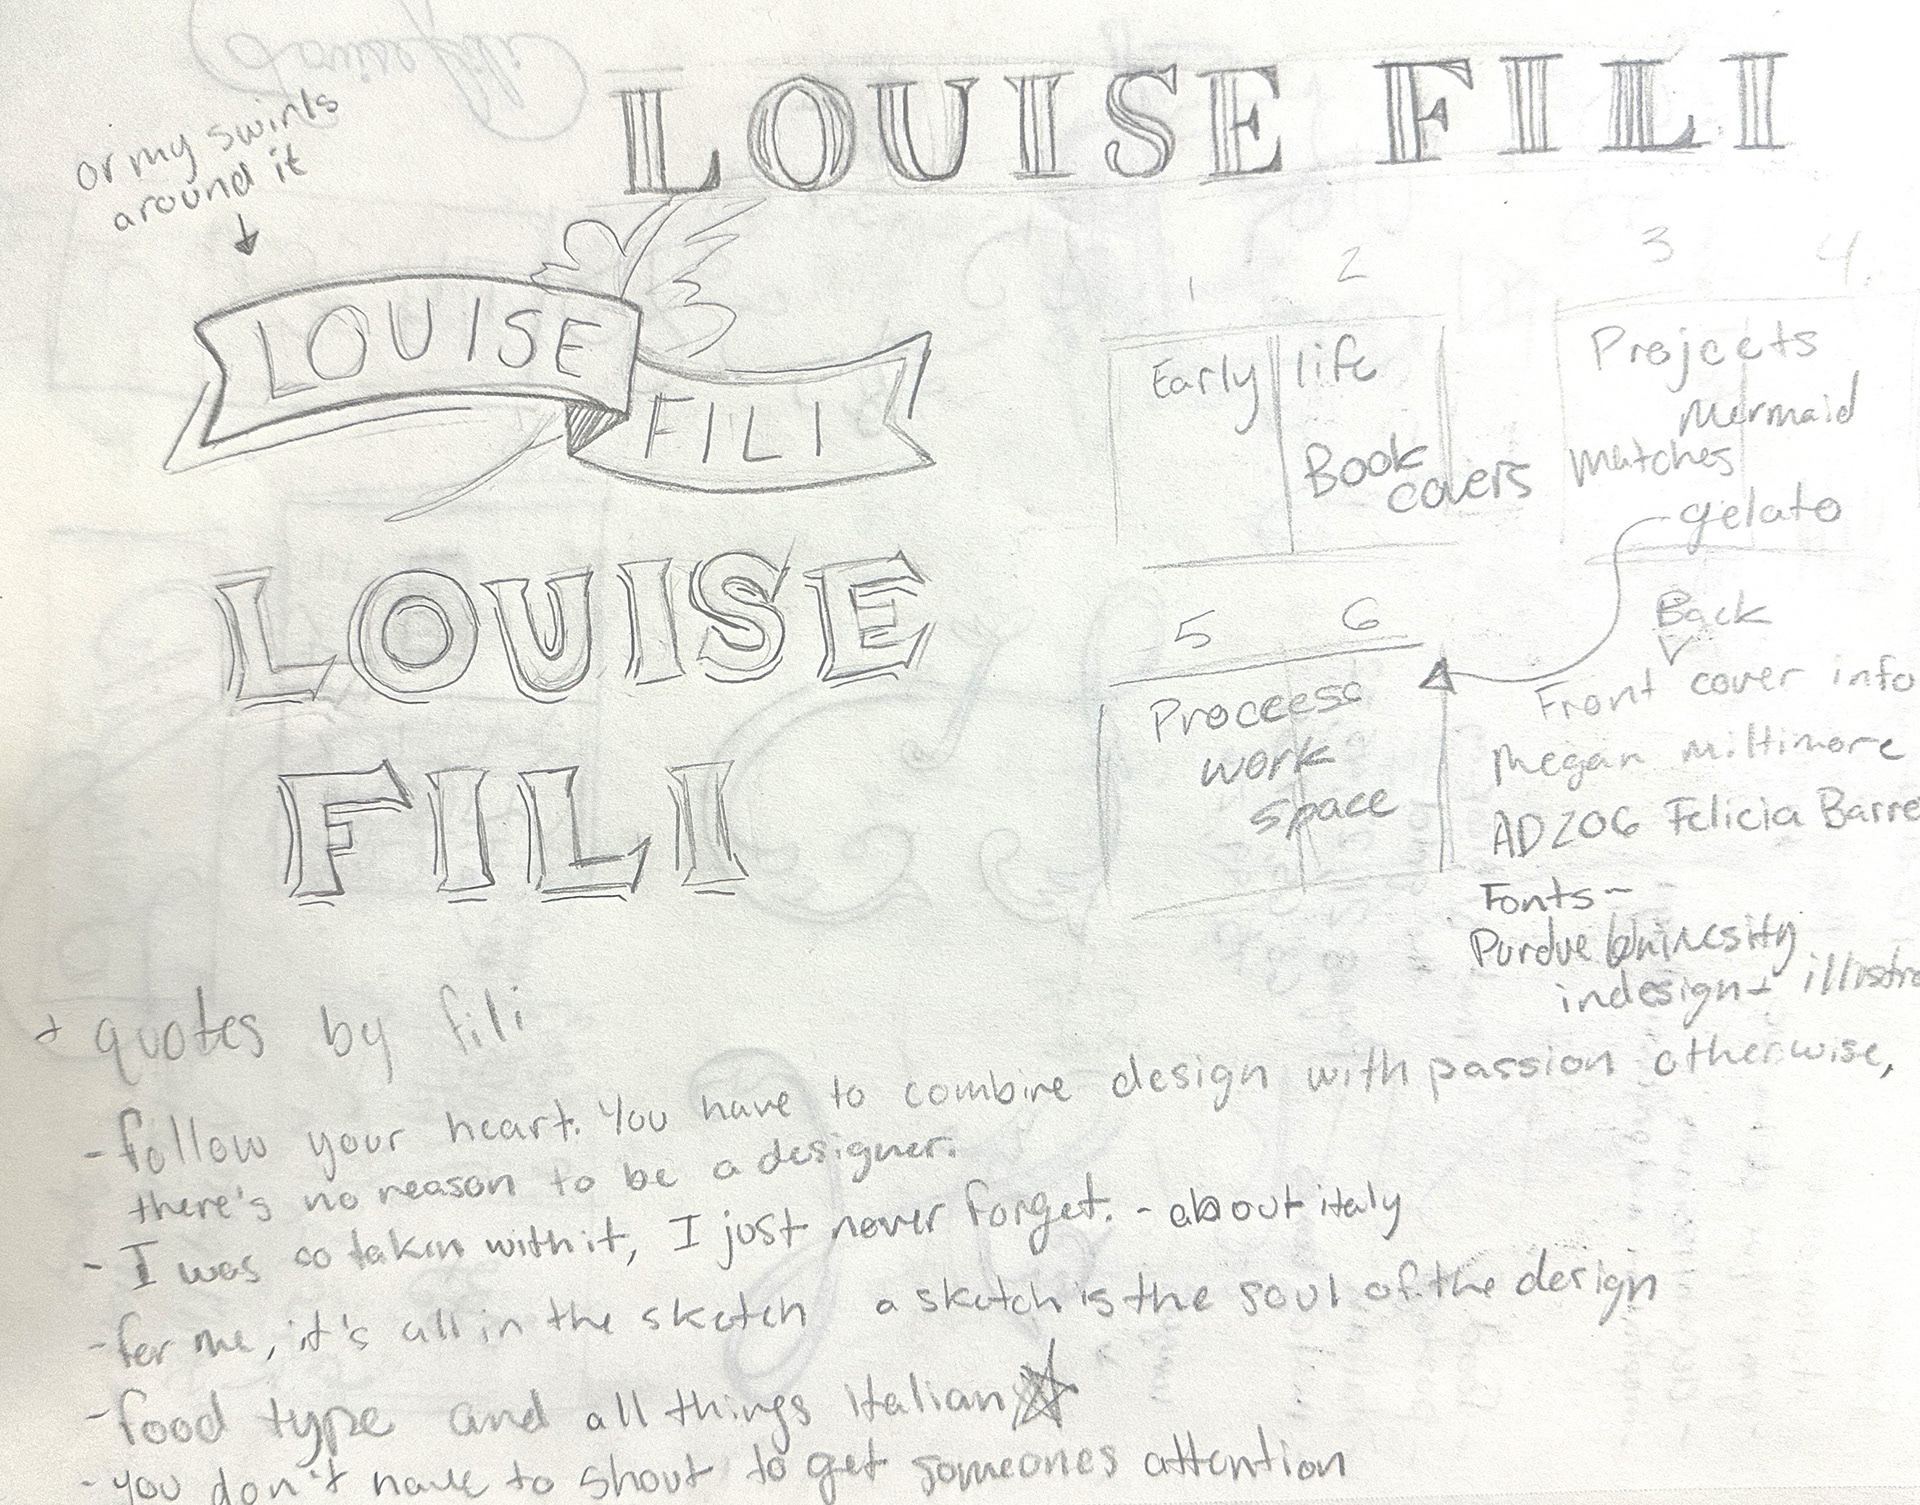 LOUISE FILI
or my swirls
around it
LOUISE
FILI
LOUISE
FILI
1 2 3 4
Early life
Book
covers
Projects
Mermaid
Matches
gelato
5 6
Proccess
work
space
Back
Front cover info
Megan Miltimore
AD206 Felicia Barre
Fonts~
Purdue University
indesign + illustra
+ quotes by fili
- follow your heart. You have to combine design with passion otherwise,
there's no reason to be a designer.
- I was so taken with it, I just never forget. - about italy
- for me, it's all in the sketch a sketch is the soul of the design
- food type and all things italian
- you don't have to shout to get someones attention